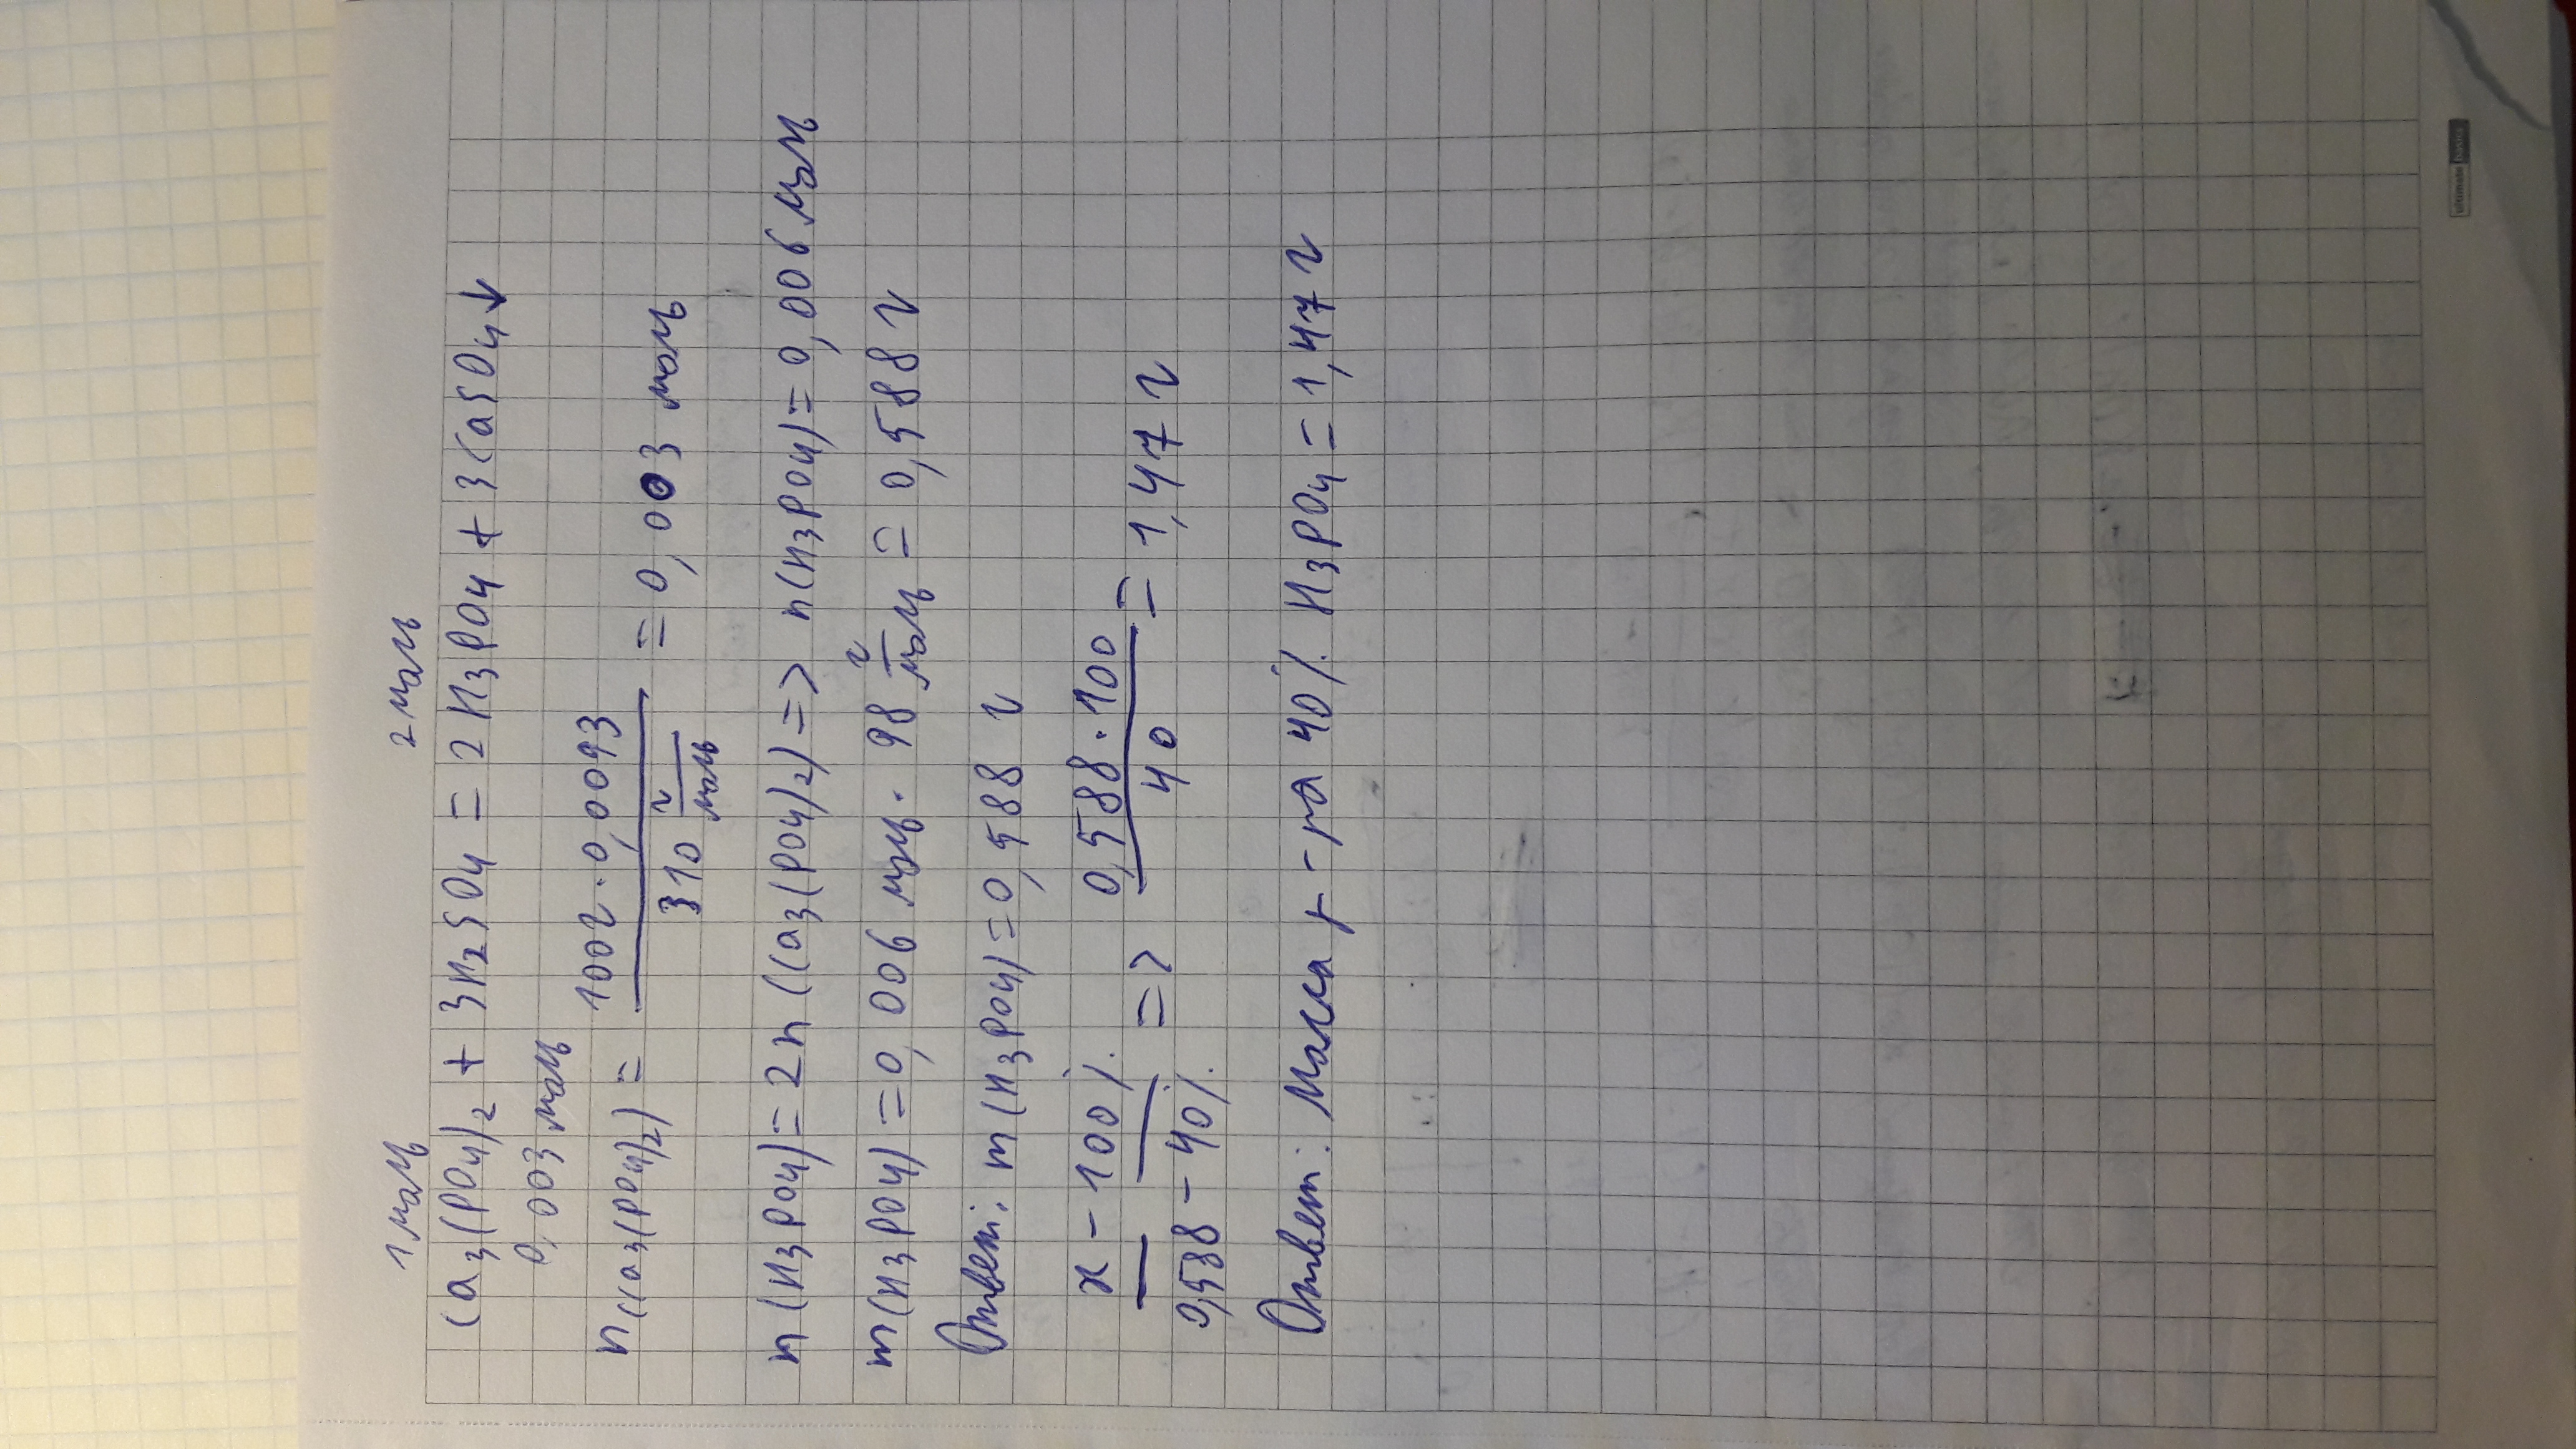 1 моль 2 моль
Ca3(PO4)2 + 3H2SO4 = 2H3PO4 + 3CaSO4↓
0,003 моль
n(Ca3(PO4)2) = 100г · 0,0093 / 310 г/моль = 0,003 моль
n(H3PO4) = 2n (Ca3(PO4)2) => n(H3PO4) = 0,006 моль
m(H3PO4) = 0,006 моль · 98 г/моль = 0,588 г
Ответ: m(H3PO4) = 0,588 г
x - 100% / 0,588 - 40% => 0,588 · 100 / 40 = 1,47 г
Ответ: Масса р-ра 40% H3PO4 = 1,47 г
ultimate basics